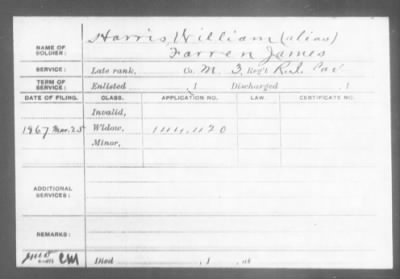 Harris, William (alias)
NAME OF SOLDIER: Farren James
SERVICE: Late rank, Co. M. 3, Reg't R.I. Cav
TERM OF SERVICE: Enlisted , 1 Discharged , 1
DATE OF FILING. CLASS. APPLICATION NO. LAW. CERTIFICATE NO.
Invalid,
1867 Mar. 25 Widow, 144,420
Minor,
ADDITIONAL SERVICES:
REMARKS:
CM Died , 1 , at